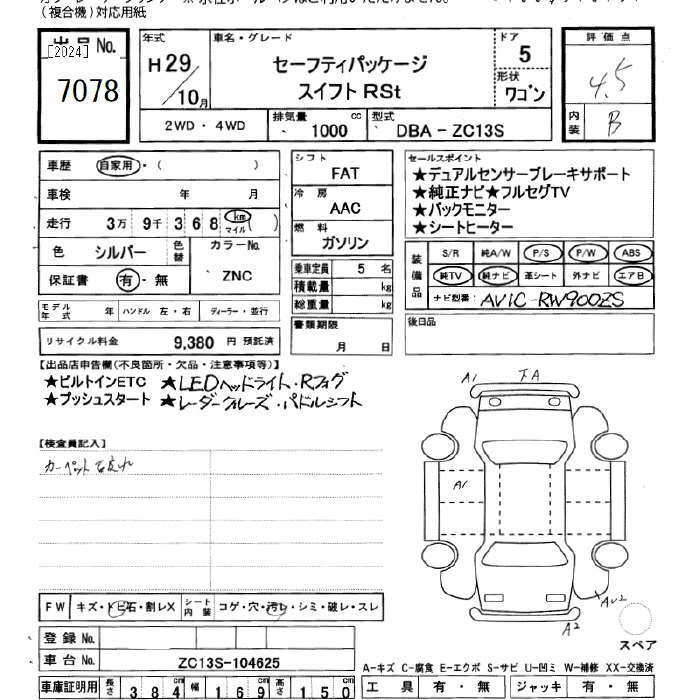 (複合機)対応用紙
出品No.
[2024]
7078
年式
H29/10月
車名・グレード
セーフティパッケージ
スイフト RSt
ドア
5
形状
ワゴン
2WD・4WD
排気量 1000 cc
型式 DBA-ZC13S
評価点
4.5
内装
B
車歴 自家用・( )
車検 年 月
走行 3万 9千 3 6 8 km マイル ( )
色 シルバー 色替
カラーNo. ZNC
保証書 有・無
モデル年式 年 ハンドル 左・右 ディーラー・並行
リサイクル料金 9,380 円 預託済
シフト
FAT
冷房
AAC
燃料
ガソリン
乗車定員 5 名
積載量 kg
総重量 kg
書類期限
月 日
セールスポイント
★デュアルセンサーブレーキサポート
★純正ナビ★フルセグTV
★バックモニター
★シートヒーター
装備品
S/R 純A/W P/S P/W ABS
純TV 純ナビ 革シート 外ナビ エアB
ナビ型番: AVIC-RW900ZS
後日品
【出品店申告欄(不良箇所・欠品・注意事項等)】
★ビルトインETC ★LEDヘッドライト・Rフォグ
★プッシュスタート ★レーダークルーズ・パドルシフト
【検査員記入】
カーペット
A1
A1
A2
FW キズ・トビ石・割レX シート内装 コゲ・穴・汚レ・シミ・破レ・スレ
登録No.
車台No. ZC13S-104625
車庫証明用 長さ 384cm 幅 169cm 高さ 150cm
スペア
A-キズ C-腐食 E-エクボ S-サビ U-凹ミ W-補修 XX-交換済
工具 有・無 ジャッキ 有・無